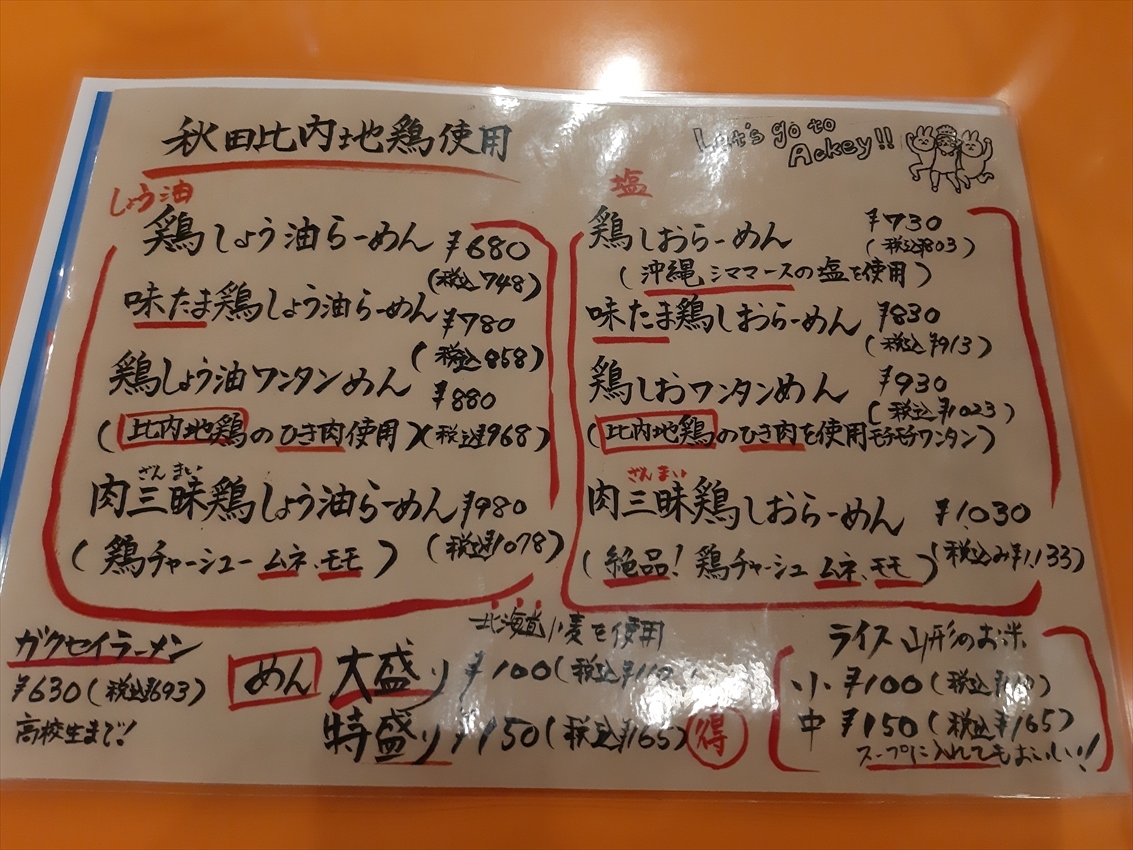 秋田比内地鶏使用
Let's go to
Ackey!!
しょう油
鶏しょう油らーめん ¥680
(税込748)
味たま鶏しょう油らーめん ¥780
(税込858)
鶏しょう油ワンタンめん ¥880
(比内地鶏のひき肉使用)(税込¥968)
ざんまい
肉三昧鶏しょう油らーめん ¥980
(鶏チャーシュームネ、モモ) (税込¥1078)
塩
鶏しおらーめん ¥730
(税込¥803)
(沖縄、シママースの塩を使用)
味たま鶏しおらーめん ¥830
(税込¥913)
鶏しおワンタンめん ¥930
(税込¥1023)
(比内地鶏のひき肉を使用モチモチワンタン)
ざんまい
肉三昧鶏しおらーめん ¥1030
(絶品!鶏チャーシュムネ、モモ) (税込み¥1,133)
ガクセイラーメン
¥630(税込¥693)
高校生まで!
北海道小麦を使用
めん 大盛り ¥100(税込¥110)
特盛り ¥150(税込¥165) 得
ライス 山形のお米
小 ¥100(税込¥110)
中 ¥150(税込¥165)
スープに入れてもおいしい!!